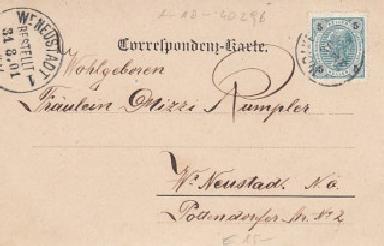 A-AD-40296
W. NEUSTADT
BESTELLT
31.8.01
1
Correspondenz-Karte.
Wohlgeboren
Fräulein Mizzi Rumpler
W. Neustadt. N.Ö.
Pottendorfer Str. № 2
€ 15-